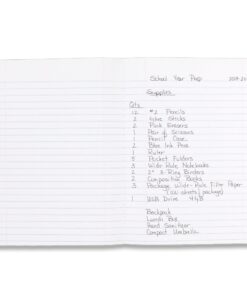 School Year Prep
Supplies
Qty.
12 #2 Pencils
2 Glue Sticks
2 Pink Erasers
1 Pair of Scissors
Pencil Case
2 Blue Ink Pens
1 Ruler
5 Pocket Folders
3 Wide-Rule Notebooks
2 2" 3-Ring Binders
2 Composition Books
3 Package Wide-Rule Filler Paper
(100 sheets/package)
1 USB Drive 4GB
Backpack
Lunch Bag
Hand Sanitizer
Compact Umbrella